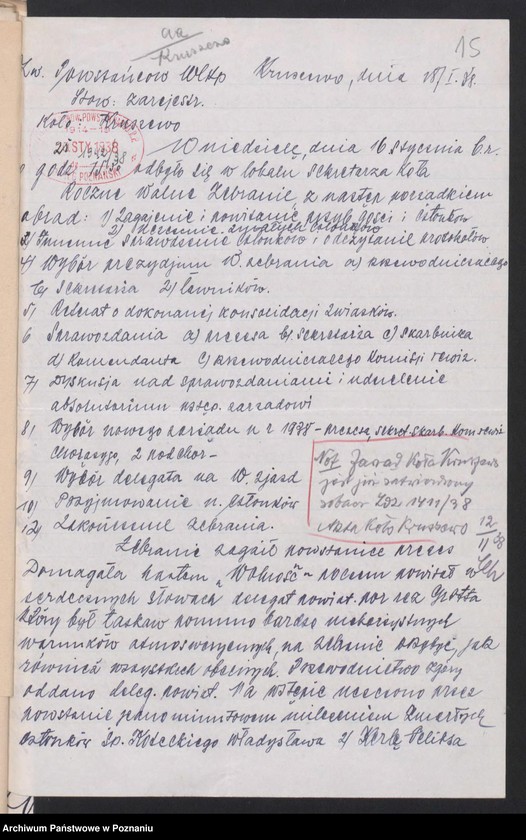 aa
Kruszewo
15
Zw. Powstańców Wlkp Kruszewo, dnia 18/I.38.
Stow: zarejestr.
Koło: Kruszewo
W niedzielę, dnia 16 stycznia b.r.
o godz. odbyło się w lokalu sekretarza Koła
Roczne Walne Zebranie, z następ. porządkiem
obrad: 1) Zagajenie i powitanie przyb. gości i członków
2) zmarłych członków
3) Imienne sprawdzenie członków i odczytanie protokołów
4) Wybór prezydjum W. zebrania a) przewodniczącego
b) sekretarza 2) ławników.
5) Referat o dokonanej konsolidacji związków.
6 Sprawozdania a) prezesa b) sekretarza c) skarbnika
d) Komendanta e) przewodniczącego Komisji rewiz.
7) Dyskusja nad sprawozdaniami i udzielenie
absolutorium ustęp. zarządowi
8) Wybór nowego zarządu n. r 1938 - prezesa, sekret. skarb. Kom rewiz
chorążego, 2 podchor -
9) Wybór delegata na W. zjazd
10) Przyjmowanie n. członków
12) Zakończenie zebrania.
Not Zarząd Koła Kruszewo
jest już zatwierdzony
zobacz 1411/38
Akta Koło Kruszewo 12/II 38
Zebranie zagaił powstaniec prezes
Domagała hasłem „Wolność" poczem powitał w
serdecznych słowach delegat. powiat. por rez
który był łaskaw pomimo bardzo niekorzystnych
warunków atmosferycznych, na zebranie przybyć, jak
również wszystkich obecnych. Przewodnictwo
oddano deleg. powiat. Na wstępie uczczono przez
powstanie jednominutowem milczeniem zmarłych
członków śp. Koteckiego Władysława 2)
Archiwum Państwowe w Poznaniu